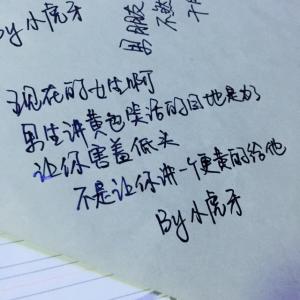 By小虎牙
现在的女生啊
男生讲黄色笑话的目地是为了
让你害羞低头
不是让你讲一个更黄的给他
By小虎牙